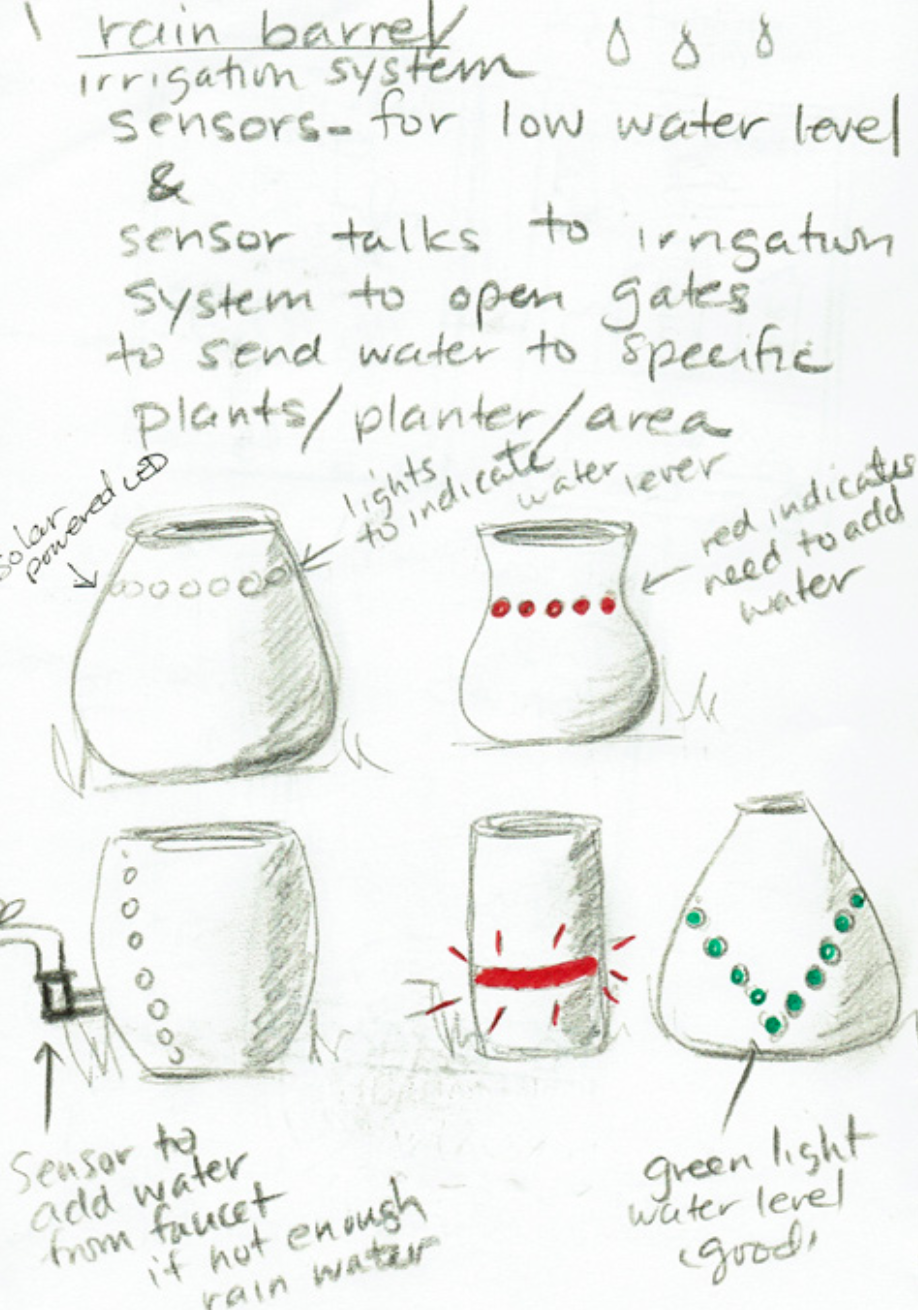 rain barrel
irrigation system
sensors - for low water level
&
sensor talks to irrigation
system to open gates
to send water to specific
plants/planter/area
solar
powered LED
lights
to indicate
water lever
red indicates
need to add
water
Sensor to
add water
from faucet
if not enough
rain water
green light
water level
(good)